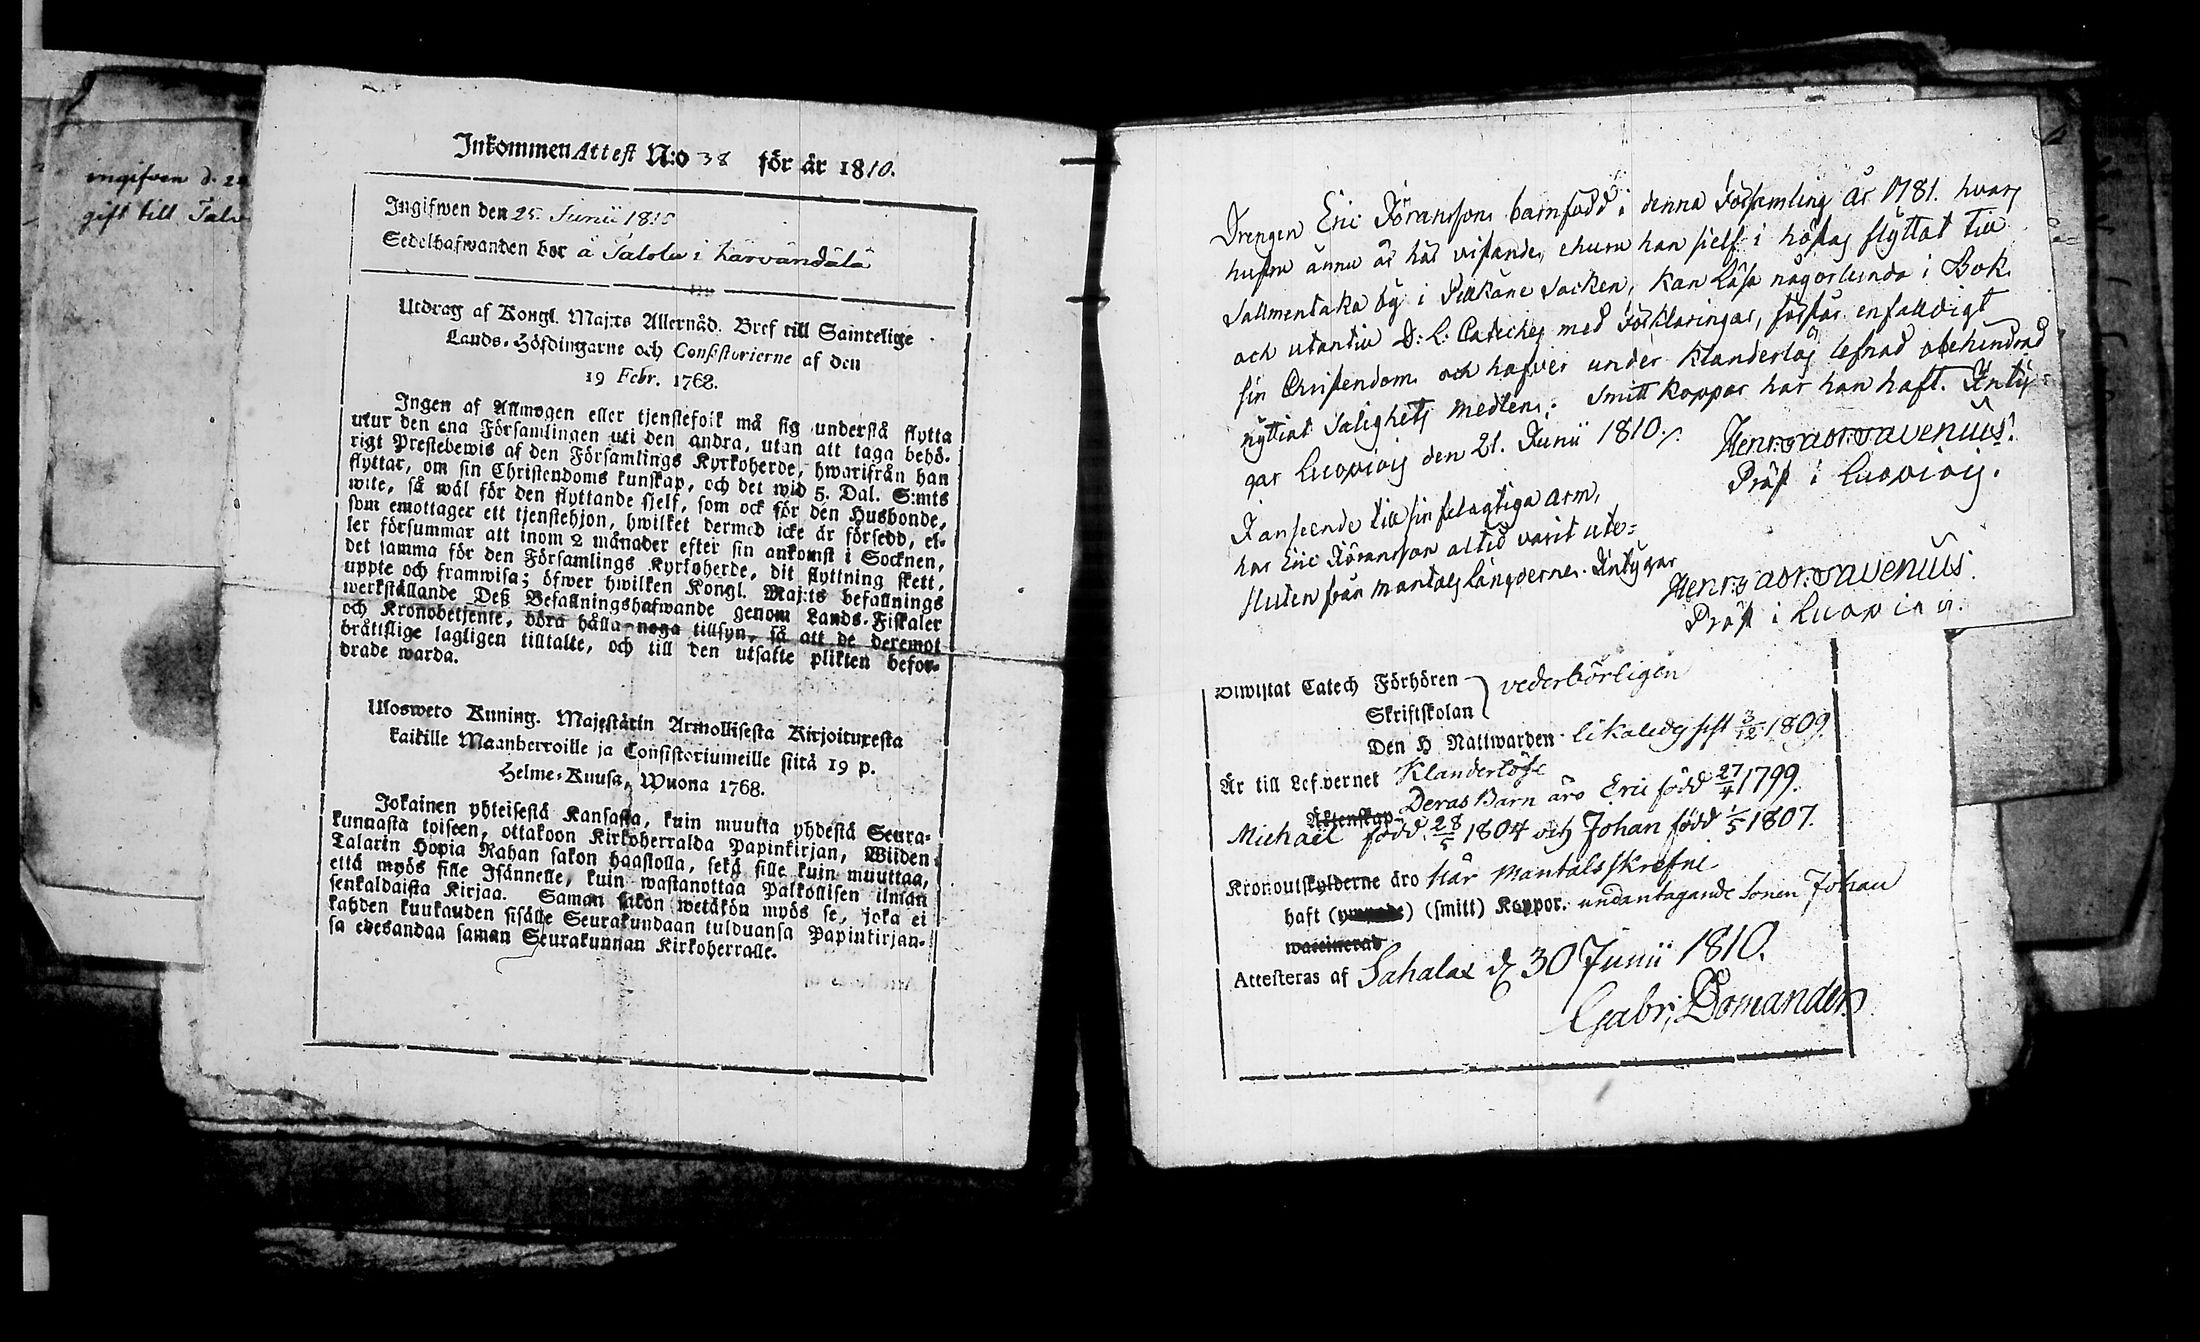 ingifven d. 2
gift till Talv
Inkommen Attest N:o 38 för år 1810.
Ingifwen den 25 Junii 1810
Sedelhafwanden bor å Salola i härvändälä
Utdrag af Kongl. Maj:ts Allernåd. Bref till Samtelige
Lands-Höfdingarne och Consistorierne af den
19 Febr. 1768.
Ingen af Allmogen eller tjenstefolk må sig understå flytta
utur den ena Församlingen uti den andra, utan att taga behö-
rigt Prestebewis af den Församlings Kyrkoherde, hwarifrån han
flyttar, om sin Christendoms kunskap, och det wid 5. Dal. S:mts
wite, så wäl för den flyttande sjelf, som ock för den Husbonde,
som emottager ett tjenstehjon, hwilket dermed icke är försedd, el-
ler försummar att inom 2 månader efter sin ankomst i Socknen,
det samma för den Församlings Kyrkoherde, dit flyttning skett,
uppte och framwisa; öfwer hwilken Kongl. Maj:ts befallnings
werkställande Deß Befallningshafwande genom Lands-Fiskaler
och Kronobetjente, böra hålla noga tillsyn, så att de deremot
bråttslige lagligen tilltalte, och till den utsatte plikten befor-
drade warda.
Ulosweto Kuning. Majestätin Armollisesta Kirjoituxesta
kaikille Maanherroille ja Consistoriumeille siitä 19 p.
Helme-Kuusa, Wuona 1768.
Jokainen yhteisestä Kansasta, kuin muutta yhdestä Seura-
kunnasta toiseen, ottakoon Kirkoherralda Papinkirjan, Wiiden
Talarin Hopia Rahan sakon haastolla, sekä sille kuin muuttaa,
että myös sille Isännelle, kuin wastanottaa Palkollisen ilman
senkaldaista Kirjaa. Saman sakon wetäkön myös se, joka ei
kahden kuukauden sisälle Seurakundaan tulduansa Papinkirjan-
sa edesandaa saman Seurakunnan Kirkoherralle.
Drengen Eric Jöransson barnfödd i denna Församling År 1781. hvars
hustru ännu är här vistande, ehuru han sielf i höstas flyttat till
Sallmentaka by i Pelkäne Socken, kan läsa någorlunda i Bok
och utantill D: L: Cateches med Förklaringar, förstår enfalldigt
sin Christendom och hafver under klanderlös lefnad obehindrad
nyttiat Salighets medlen. Smittkoppor har han haft. Intÿ-
gar Luopiois den 21. Junii 1810.
Henr: Adr: Avenius.
Pråst i Luopiois.
I anseende till sin felagtiga arm,
har Eric Jöransson altid varit ute-
sluten från mantals längderne. Intygar
Henr: Adr: Avenius.
Pråst i Luopiois.
Biwistat Catech Förhören vederbörligen
Skriftskolan
Den H Nattwarden likaledes sist 3/12 1809.
Är till Lefvernet Klanderlöse
Äktenskap Deras Barn äro Eric född 27/4 1799.
Michaël född 28/5 1804 och Johan född 1/5 1807.
Kronoutskylderne äro här Mantals skrefne
haft () (smitt) Koppor. undantagande Sonen Johan
waccinerad
Attesteras af Sahalax d 30 Junii 1810.
Gabr: Domander